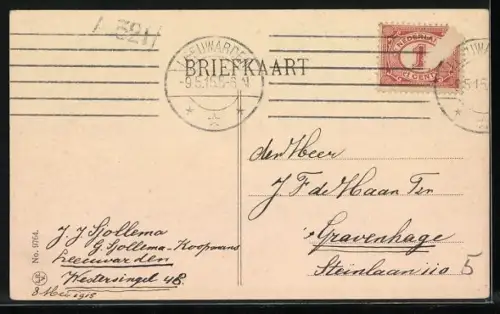 A 3211
LEEUWARDEN
-9.5.15.5-6.N
BRIEFKAART
NEDERLAND
1
CENT
den Heer
J. F. de Haan Tzn
's Gravenhage
Steinlaan 110
5
J. J. Sjollema
G. Sjollema-Koopmans
Leeuwarden
Westersingel 48.
8 Mei 1915
No. 9764.